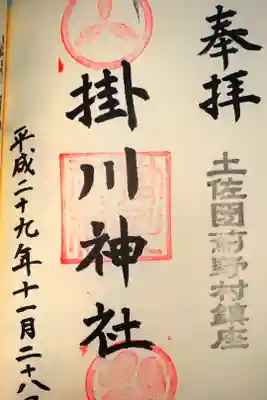 奉拝
土佐国薊野村鎮座
掛川神社
平成二十九年十一月二十八日